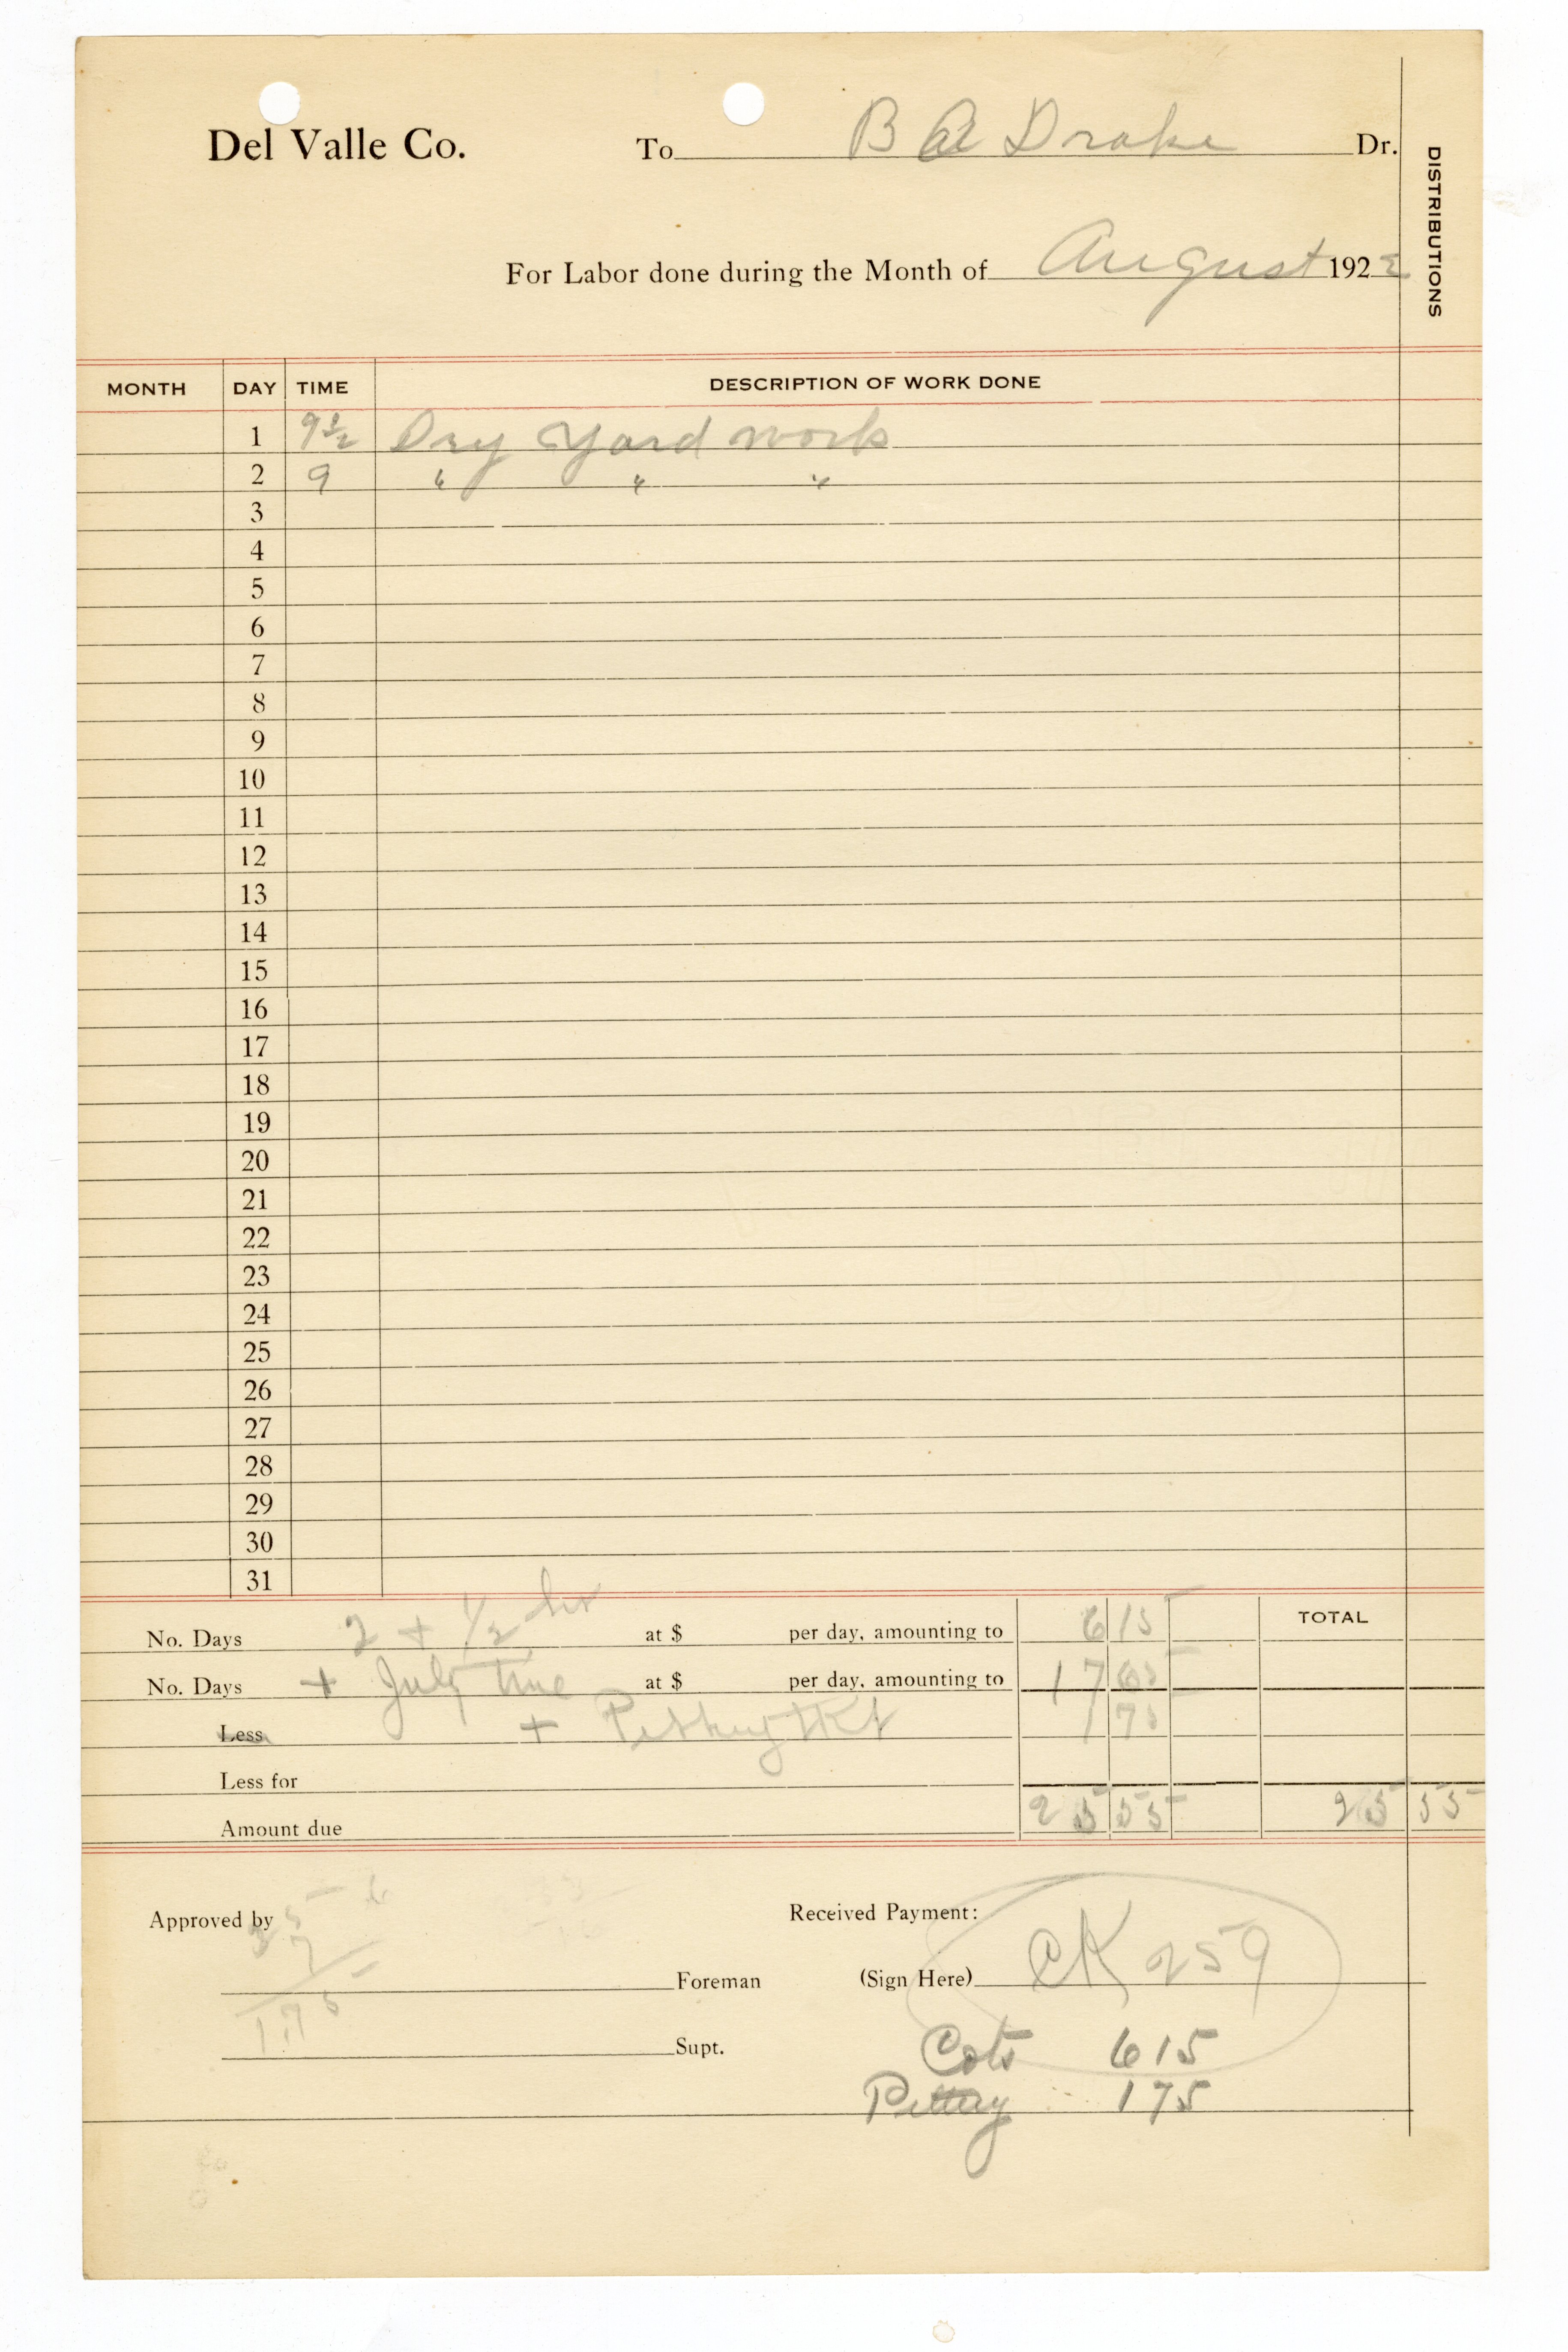 Del Valle Co. To B A Drake Dr.
DISTRIBUTIONS
For Labor done during the Month of August 1922
MONTH DAY TIME DESCRIPTION OF WORK DONE
1 9½ Dry Yard work
2 9 " " "
3
4
5
6
7
8
9
10
11
12
13
14
15
16
17
18
19
20
21
22
23
24
25
26
27
28
29
30
31
No. Days 2 + ½ hr at $ per day, amounting to 6 15 TOTAL
No. Days + July time at $ per day, amounting to 17 65
Less + 1 75
Less for
Amount due 25 55 25 55
Approved by Received Payment:
35
Foreman (Sign Here) CK 259
175
Supt. Cots 615
175